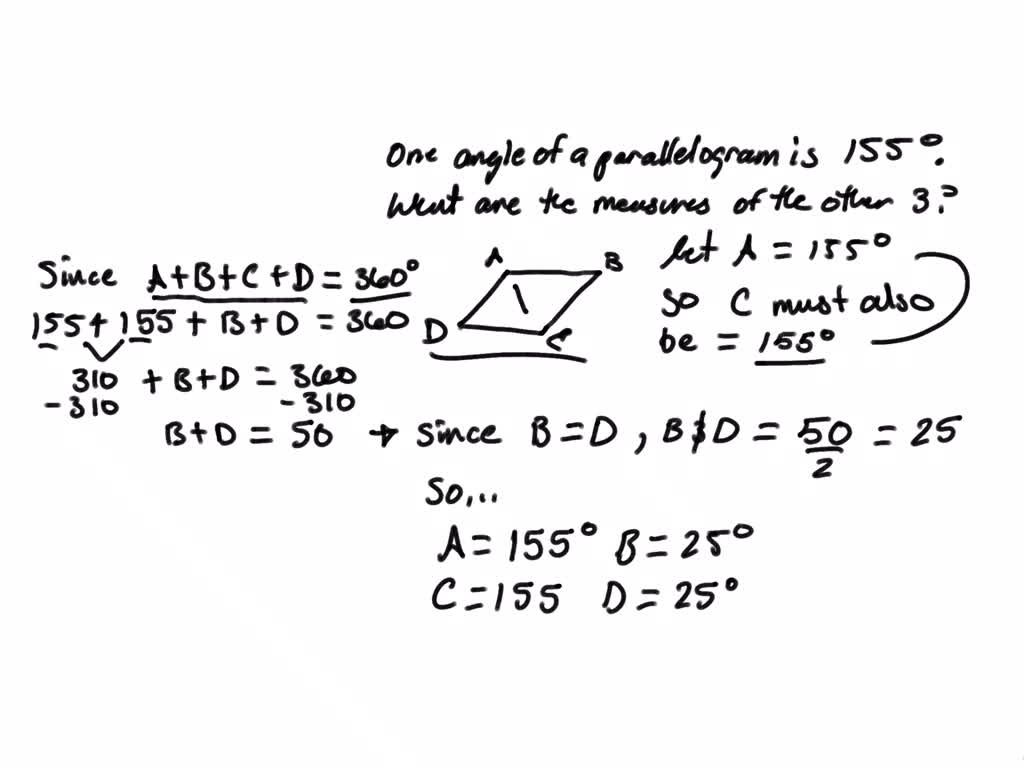 One angle of a parallelogram is 155°.
What are the measures of the other 3?
let A = 155°
so C must also
be = 155°
A
B
D
C
Since A+B+C+D = 360°
155+155+B+D = 360
310 + B+D = 360
-310 -310
B+D = 50 → since B=D, B&D = 50/2 = 25
So,...
A=155° B=25°
C=155 D=25°